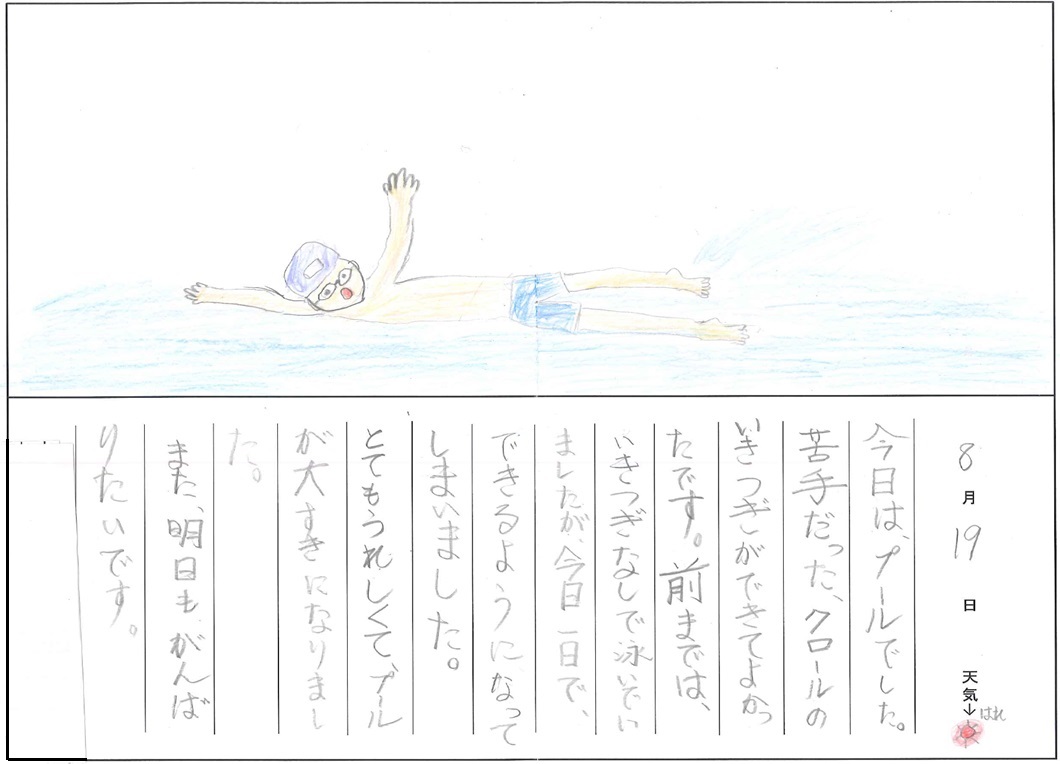 8月19日 天気→はれ
今日は、プールでした。
苦手だった、クロールの
いきつぎができてよかっ
たです。前までは、
いきつぎなしで泳いでい
ましたが、今日一日で、
できるようになって
しまいました。
とてもうれしくて、プール
が大すきになりまし
た。
また、明日もがんば
りたいです。